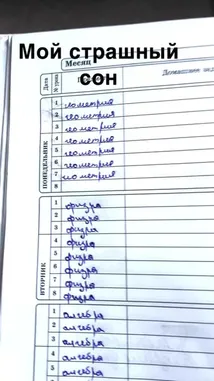 Мой страшный
сон
Месяц
Дата
№ урока
Домашнее
ПОНЕДЕЛЬНИК
1 геометрия
2 геометрия
3 геометрия
4 геометрия
5 геометрия
6 геометрия
7 геометрия
8
ВТОРНИК
1 физра
2 физра
3 физра
4 физра
5 физра
6 физра
7 физра
8 физра
1 алгебра
2 алгебра
3 алгебра
4 алгебра
5 алгебра